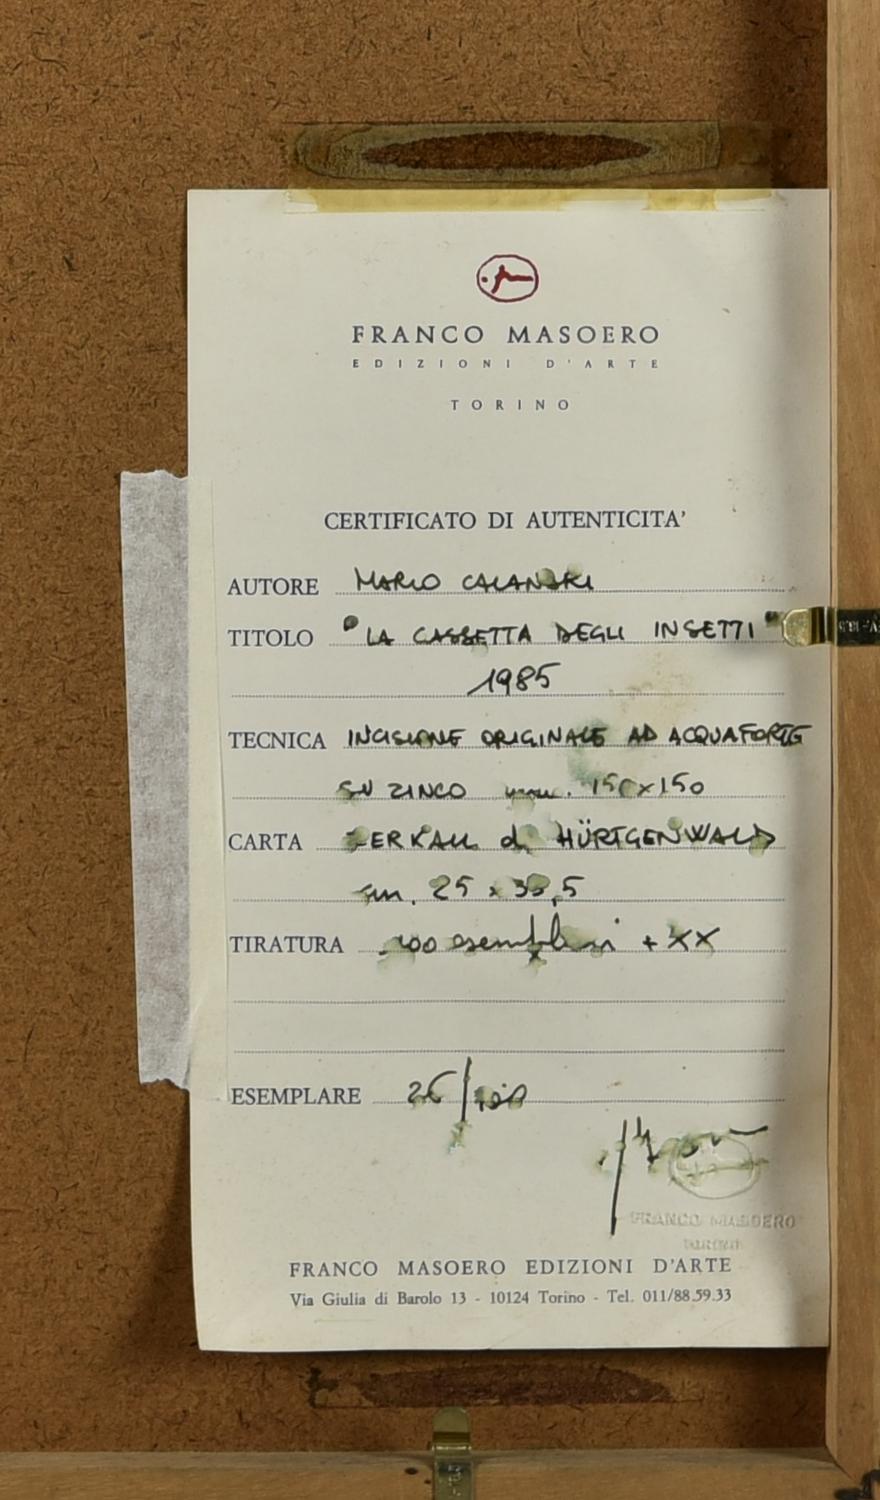 FRANCO MASOERO
EDIZIONI D'ARTE
TORINO
CERTIFICATO DI AUTENTICITA'
AUTORE MARIO CALANDRI
TITOLO "LA CASSETTA DEGLI INSETTI"
1985
TECNICA INCISIONE ORIGINALE AD ACQUAFORTE
SU ZINCO mm. 150x150
CARTA ZERKALL di HÜRTGENWALD
cm. 25 x 35,5
TIRATURA 100 esemplari + XX
ESEMPLARE 26/100
FRANCO MASOERO
TORINO
FRANCO MASOERO EDIZIONI D'ARTE
Via Giulia di Barolo 13 - 10124 Torino - Tel. 011/88.59.33